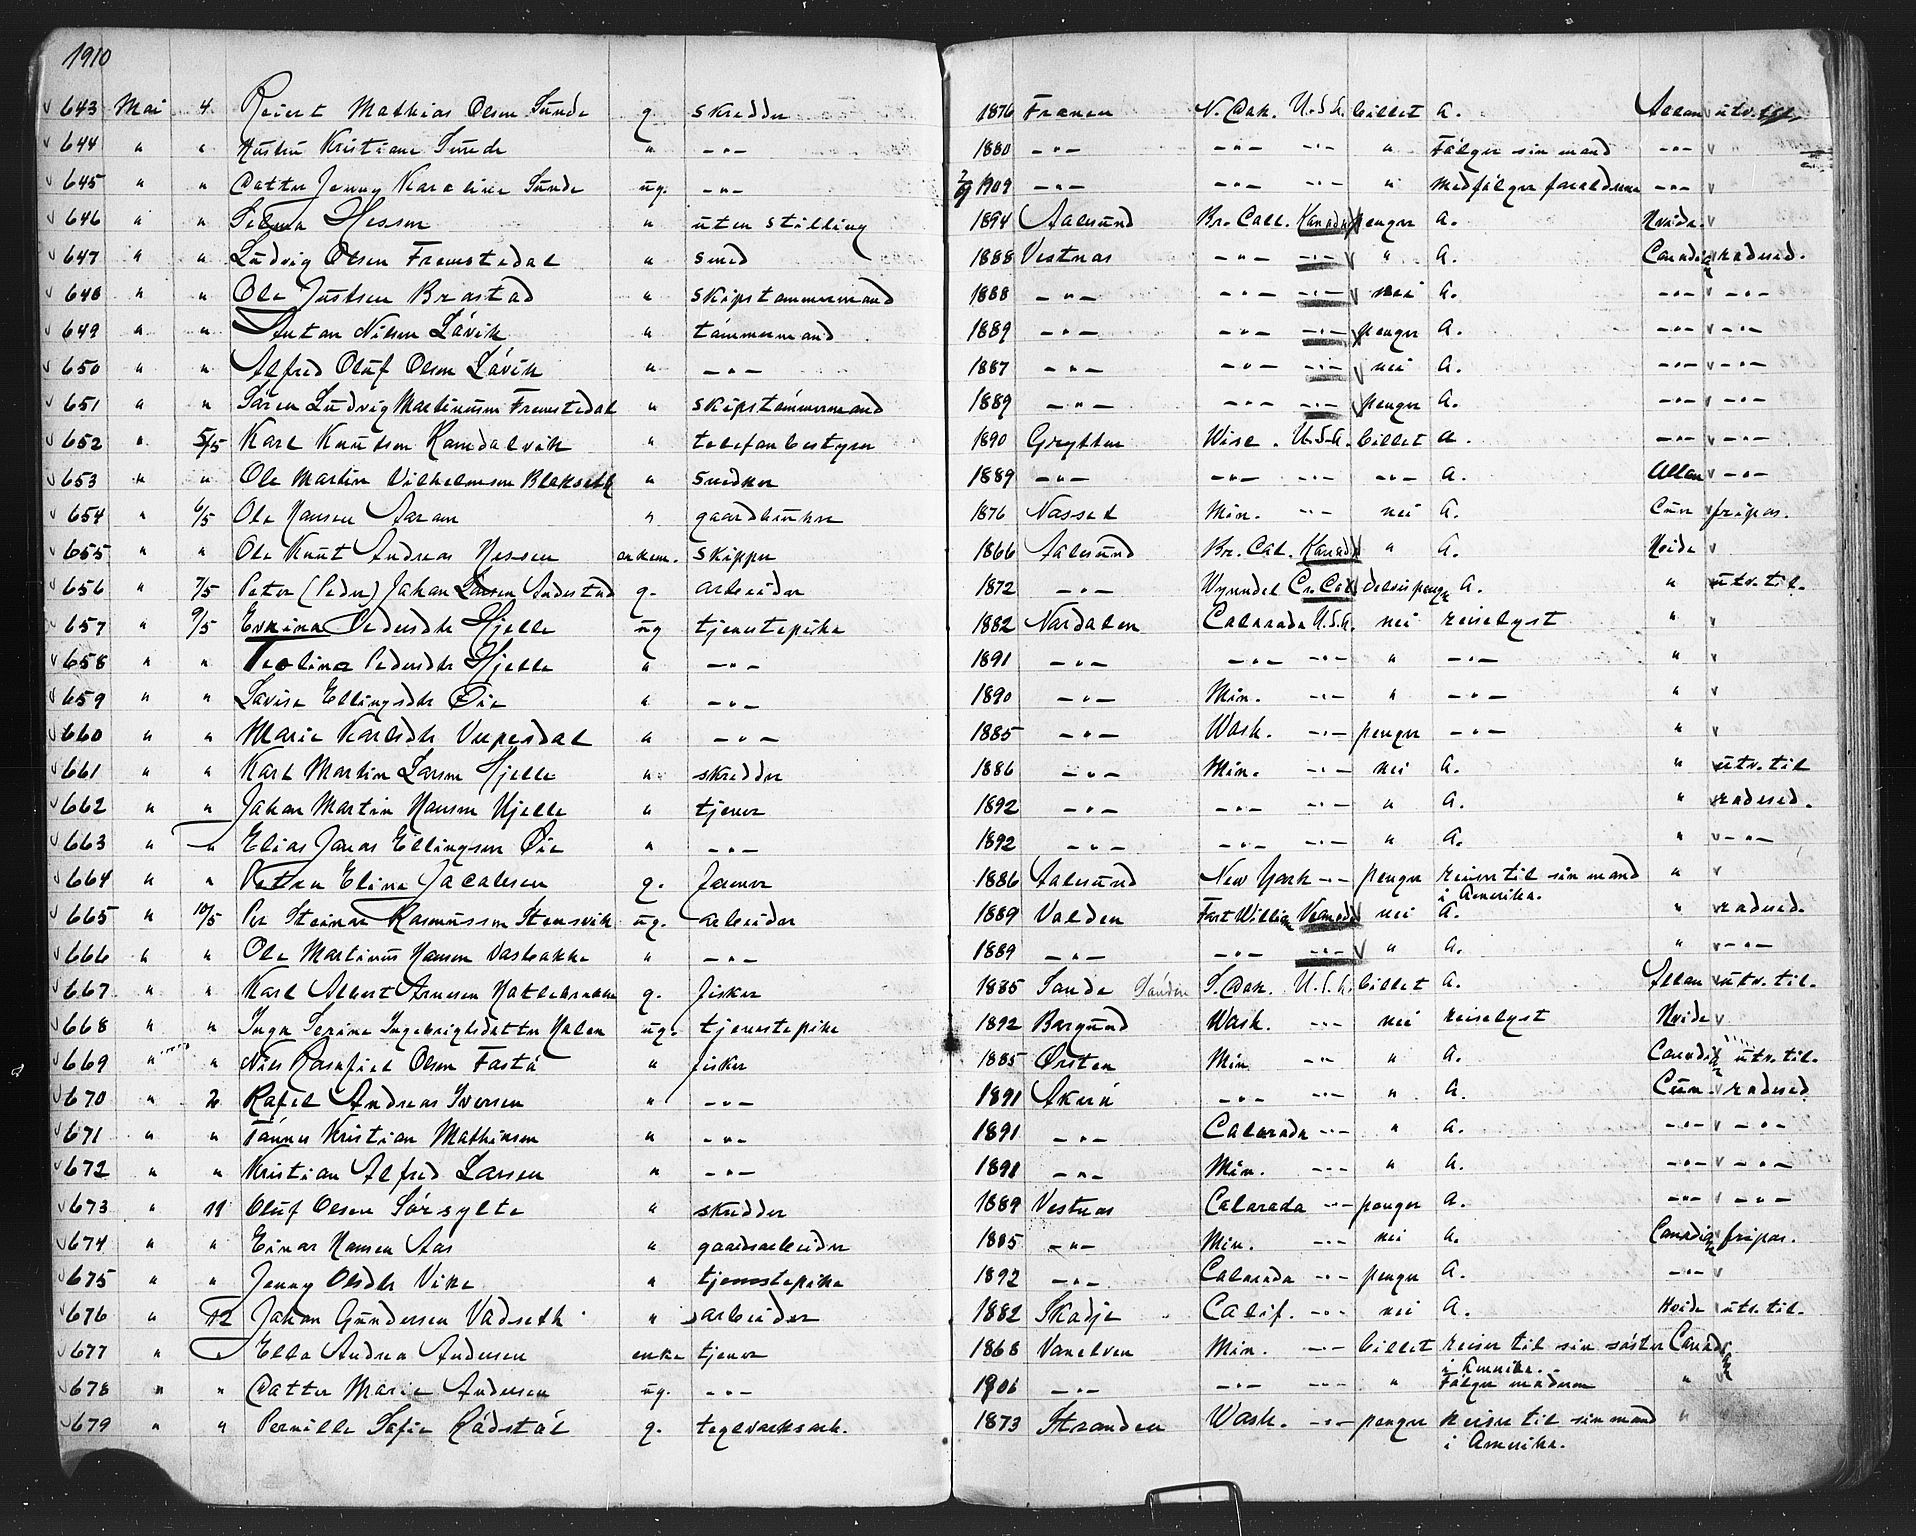 1910
643 Mai 4 Reiert Mathias Olsen Sunde g. skredder 1876 Frænen N. Dak. U.S.A. billet A. Allan utv. til
644 " " Hustru Kristiane Sunde " -"- 1880 -"- -"- -"- " Fölger sin mand -"- "
645 " " Datter Jenny Karoline Sunde ug. -"- 1909 -"- -"- -"- " medfölger foreldrene -"-
646 " " Selma Hessen " uten stilling 1894 Aalesund Br. Col. Kanada penger A. Hvide
647 " " Ludvig Olsen Fremstedal " smed 1888 Vestnes -"- -"- " A. Canadian radused.
648 " " Ole Justsen Brastad " skipstømmermand 1888 -"- -"- -"- nei A. -"- -"-
649 " " Anton Nilsen Lóvik " tømmermand 1889 -"- -"- -"- penger A. -"- -"-
650 " " Alfred Oluf Olsen Lóvik " -"- 1887 -"- -"- -"- nei A. -"- -"-
651 " " Sóren Ludvig Martinusen Fremstedal " skipstómmermand 1889 -"- -"- -"- penger A. -"- -"-
652 " 5/5 Karl Knutsen Romdalvik " telefonbestyrer 1890 Grytten Wisc. U.S.A. billet A. -"- -"-
653 " " Ole Martin Vilhelmsen Blekseth " snedker 1889 -"- -"- -"- -"- A. Allan -"-
654 " 6/5 Ole Hansen Aaram " gaardbruker 1876 Nesset Min. -"- nei A. Cun fripas.
655 " " Ole Knut Andreas Nessen enkem. skipper 1866 Aalesund Br. Col. Kanada " A. Hvide
656 " 7/5 Peter (Peder) Johan Larsen Andestad g. arbeider 1872 -"- Wynndel Br. Col. delvis penger A. " utv. til.
657 " 9/5 Evkina Pedersdtr Hjelle ug tjenestepike 1882 Nordalen Colorado U.S.A. nei reiselyst "
658 " " Teoline Pedersdtr Hjelle " -"- 1891 -"- -"- -"- " -"- "
659 " " Lovise Ellingsdtr Öie " -"- 1890 -"- Min. -"- " -"- "
660 " " Marie Karlsdtr Veepesdal " -"- 1885 -"- Wash. -"- penger -"- "
661 " " Karl Martin Larsen Hjelle " skredder 1886 -"- Min. -"- nei A. " utv. til
662 " " Johan Martin Hansen Hjelle " tjener 1892 -"- -"- -"- " A. " radused.
663 " " Elias Jonas Ellingsen Öie " -"- 1892 -"- -"- -"- " A. " -"-
664 " " Petra Eline Jacobsen g. farmer 1886 Aalesund New York -"- penger reiser til sin mand "
i Amerika.
665 " 10/5 Per Steinar Rasmussen Stensvik ug. arbeider 1889 Volden Fort William Kanada nei A. " radused.
666 " " Ole Martinus Hansen Vasbakke " -"- 1889 -"- -"- -"- " A. " -"-
667 " " Karl Albert Arnesen Hatlebrekke g. fisker 1885 Sande Söndre S. Dak. U.S.A. billet A. Allan utv. til.
668 " " Inga Serine Ingebrigtsdatter Holen ug. tjenestepike 1892 Borgund Wash. -"- nei reiselyst Hvide
669 " " Nils Bernfiel Olsen Fostó " fisker 1885 Ørsten Min -"- " A. Canadian utv. til.
670 " 2 Rafel Andreas Iversen " -"- 1891 Akerö -"- -"- " A. Cun radused
671 " " Tónnes Kristian Mathisen " -"- 1891 -"- Colorado -"- " A. -"- -"-
672 " " Kristian Alfred Larsen " -"- 1891 -"- Min. -"- " A. -"- -"-
673 " 11 Oluf Olsen Sórsylte " skredder 1889 Vestnes Colorado -"- penger A. -"- -"-
674 " " Einar Hansen Aas " gaardsarbeider 1885 -"- Min. -"- nei A. Canadian fripas.
675 " " Jenny Olsdtr Vike " tjenestepike 1892 -"- Colorado -"- penger A. -"-
676 " 12 Johan Gundersen Vadseth " arbeider 1882 Skodje Calif. -"- nei A. Hvide utv. til.
677 " " Ella Andrea Andersen enke tjener 1868 Vanelven Min. -"- billet reiser til sin sóster Canadian
i Amerika.
678 " " Datter Marie Andersen ug. -"- 1906 -"- -"- -"- " Fölger moderen "
679 " " Pernille Sofie Rödstól g. teglverksarb. 1873 Stranden Wash. -"- penger reiser til sin mand "
i Amerika.